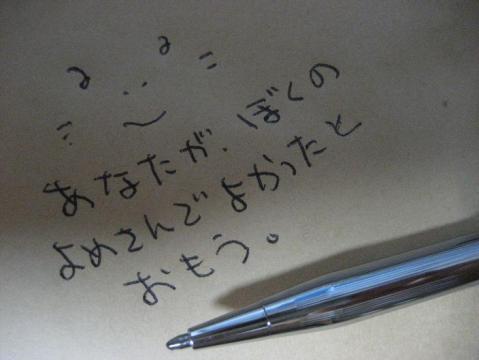 あなたが、ぼくの
よめさんでよかったと
おもう。